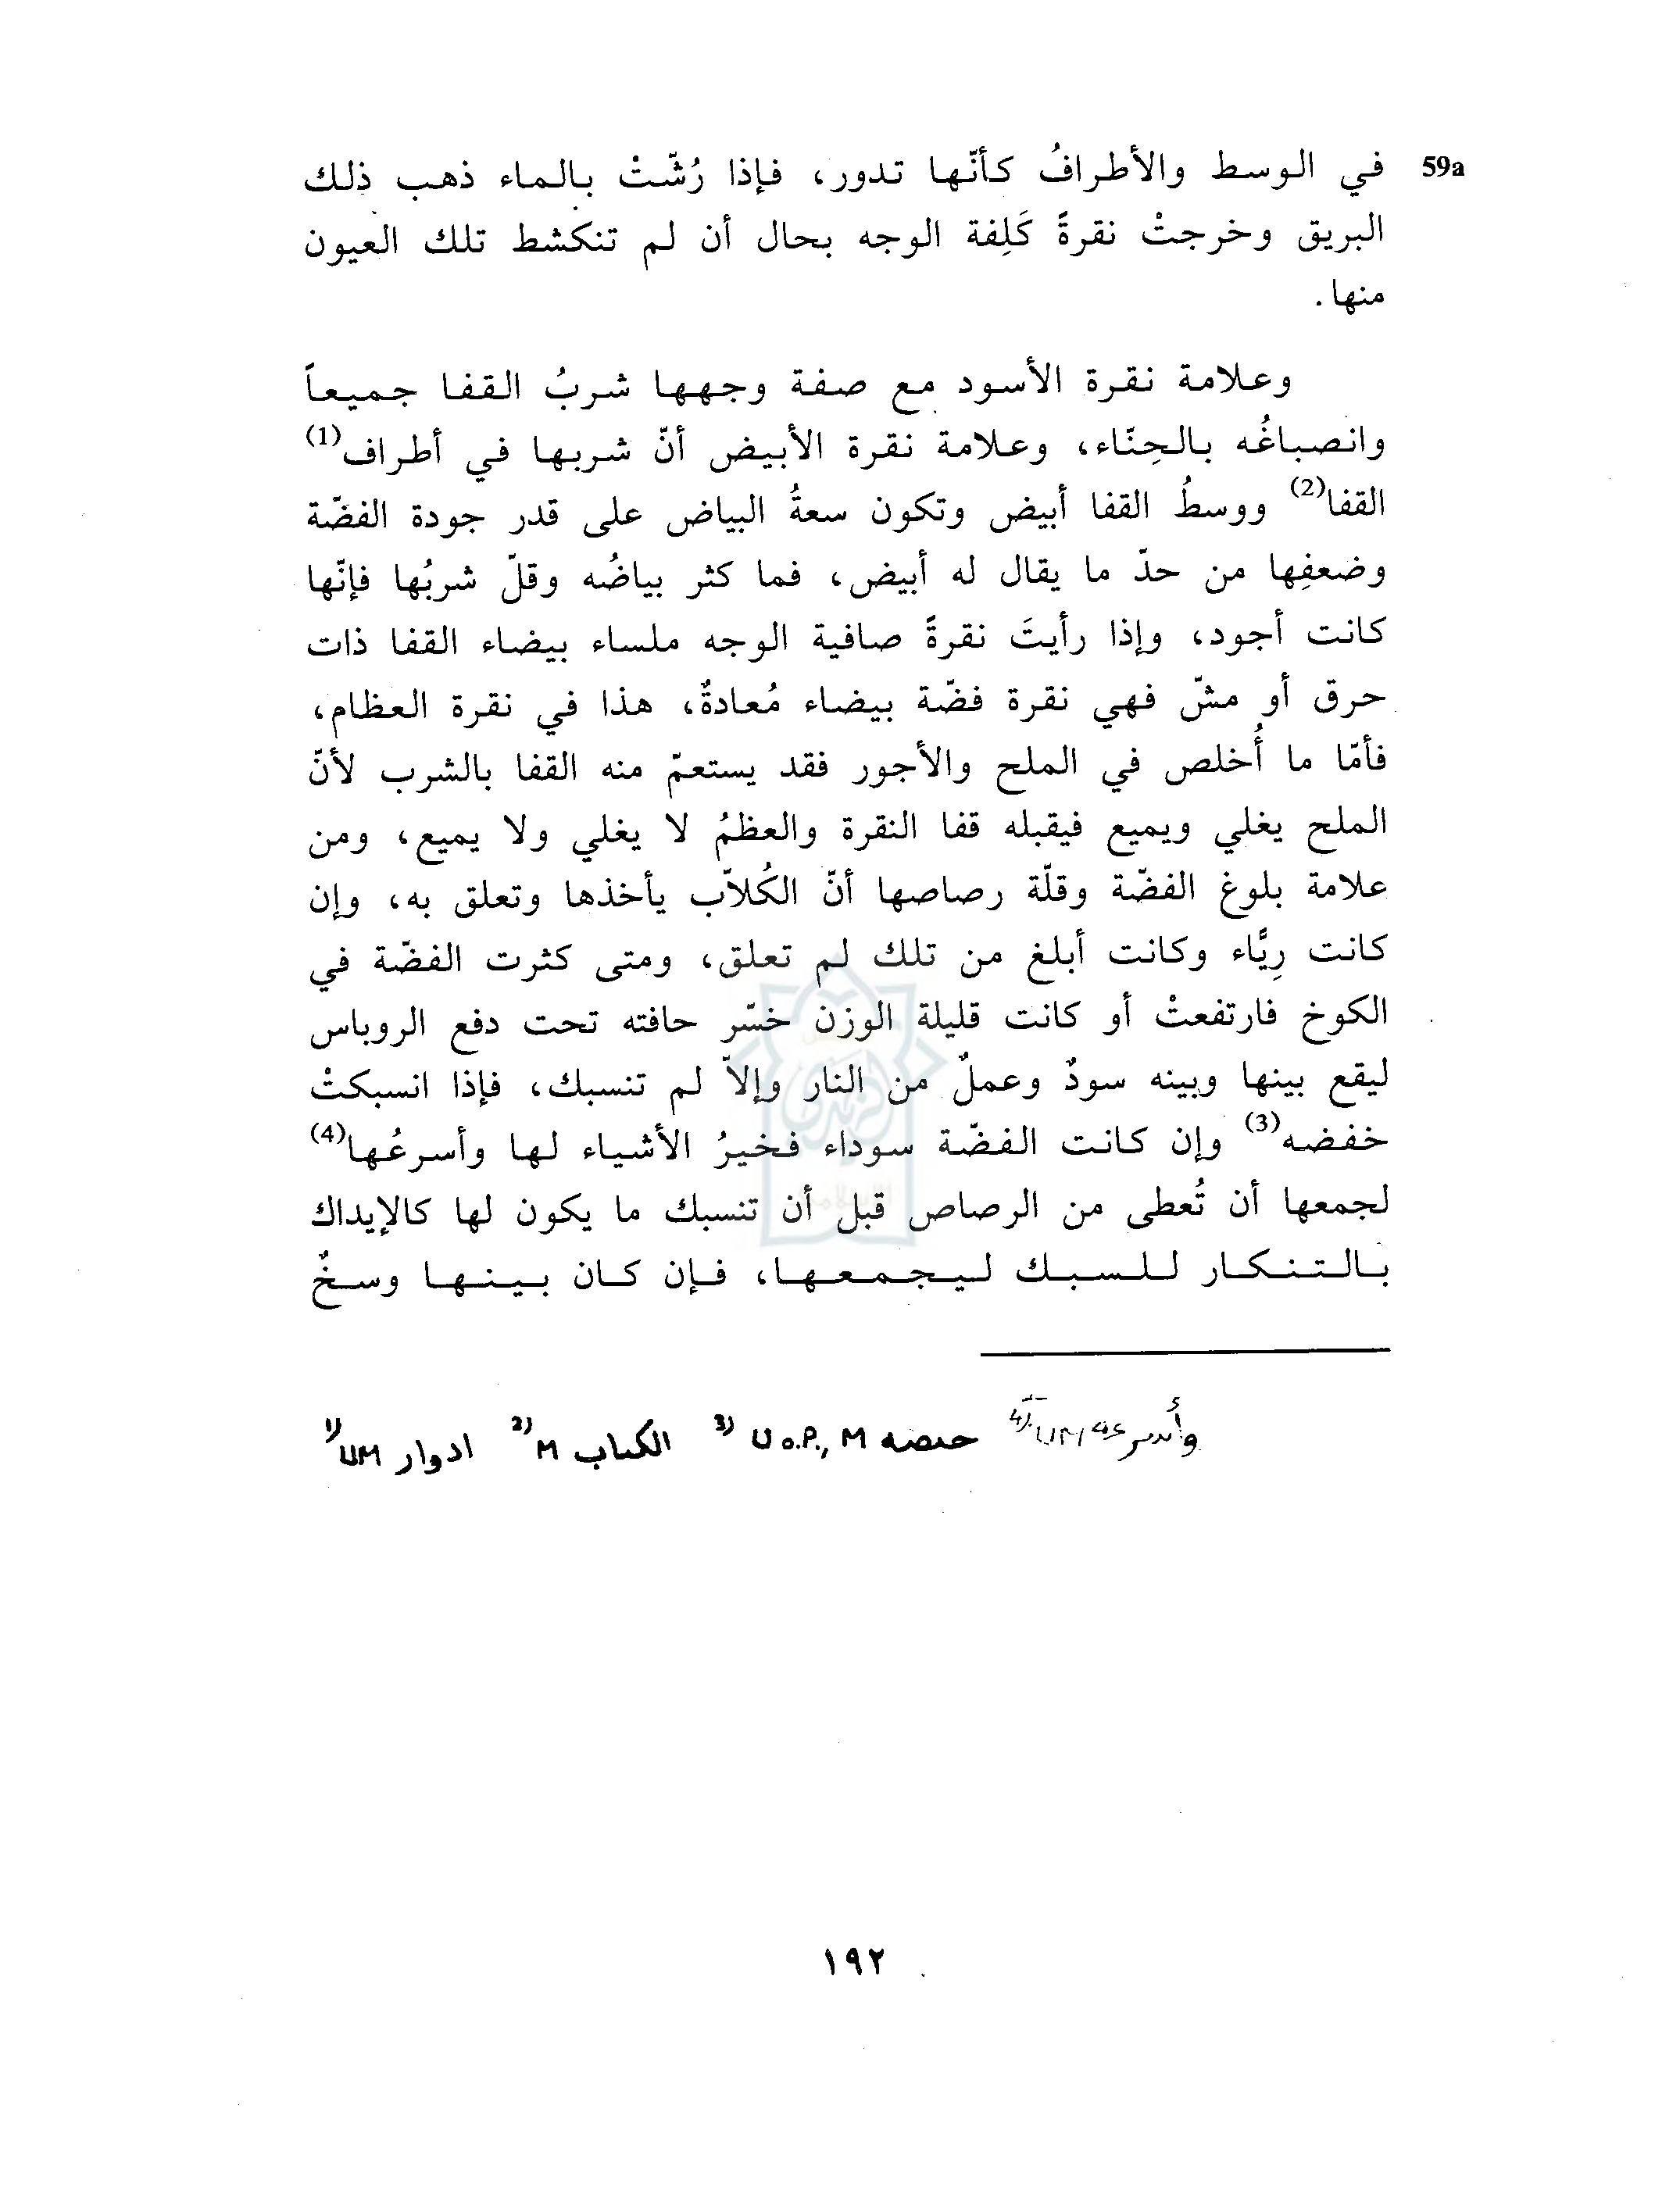 59a في الوسط والأطرافُ كأنّها تدور، فإذا رُشّتْ بالماء ذهب ذلك
البريق وخرجتْ نقرةً كَلِفة الوجه بحال أن لم تنكشط تلك العيون
منها.
وعلامة نقرة الأسود مع صفة وجهها شربُ القفا جميعاً
وانصباغُه بالحِنّاء، وعلامة نقرة الأبيض أنّ شربها في أطراف(1)
القفا(2) ووسطُ القفا أبيض وتكون سعةُ البياض على قدر جودة الفضّة
وضعفِها من حدّ ما يقال له أبيض، فما كثر بياضُه وقلّ شربُها فإنّها
كانت أجود، وإذا رأيتَ نقرةً صافية الوجه ملساء بيضاء القفا ذات
حرق أو مشّ فهي نقرة فضّة بيضاء مُعادةٌ، هذا في نقرة العظام،
فأمّا ما أُخلص في الملح والأجور فقد يستعمّ منه القفا بالشرب لأنّ
الملح يغلي ويميع فيقبله قفا النقرة والعظمُ لا يغلي ولا يميع، ومن
علامة بلوغ الفضّة وقلّة رصاصها أنّ الكُلاّب يأخذها وتعلق به، وإن
كانت رِيَّاء وكانت أبلغ من تلك لم تعلق، ومتى كثرت الفضّة في
الكوخ فارتفعتْ أو كانت قليلة الوزن خسّر حافته تحت دفع الروباس
ليقع بينها وبينه سودٌ وعملٌ من النار وإلاّ لم تنسبك، فإذا انسبكتْ
خفضه(3) وإن كانت الفضّة سوداء فخيرُ الأشياء لها وأسرعُها(4)
لجمعها أن تُعطى من الرصاص قبل أن تنسبك ما يكون لها كالإيداك
بالتنكار للسبك ليجمعها، فإن كان بينها وسخٌ
1) UM ادوار 2) M الكتاب 3) U o.P., M حصصه 4) UM وأسرعه
١٩٢